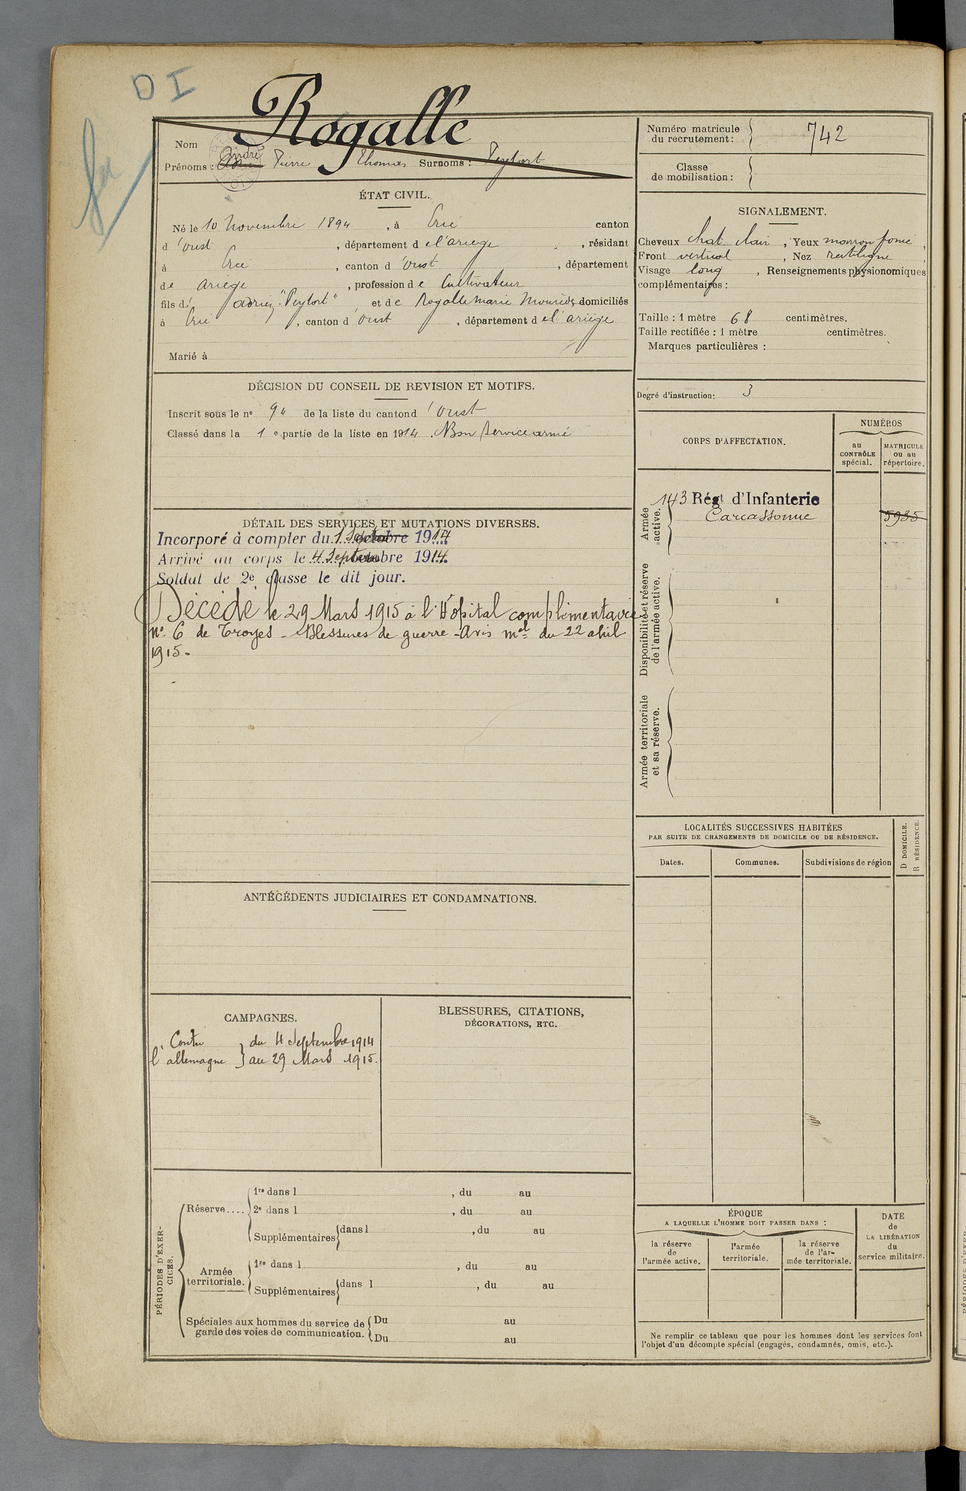 DI
Rogalle
Nom
Prénoms : André Pierre Thomas Surnoms : Peytort
Numéro matricule du recrutement : 742
Classe de mobilisation :
ÉTAT CIVIL.
Né le 10 Novembre 1894, à Ercé canton
d'Oust, département de l'ariege, résidant
à Ercé, canton d'Oust, département
de Ariege, profession de Cultivateur
fils de "Peytort" et de Rogalle Marie domiciliés
à Ercé, canton d'Oust, département de l'ariege
Marié à
SIGNALEMENT.
Cheveux chat clair, Yeux marron foncé,
Front vertical, Nez rectiligne
Visage long, Renseignements physionomiques
complémentaires :
Taille : 1 mètre 68 centimètres.
Taille rectifiée : 1 mètre centimètres.
Marques particulières :
Degré d'instruction : 3
DÉCISION DU CONSEIL DE REVISION ET MOTIFS.
Inscrit sous le n° 94 de la liste du canton d'Oust
Classé dans la 1e partie de la liste en 1914. Bon Service armé
CORPS D'AFFECTATION.
NUMÉROS
au CONTRÔLE spécial.
MATRICULE ou au répertoire.
Armée active.
143 Régt d'Infanterie
Carcassonne
5935
Disponibilité et réserve de l'armée active.
Armée territoriale et sa réserve.
DÉTAIL DES SERVICES ET MUTATIONS DIVERSES.
Incorporé à compter du 1 Septembre 1914
Arrivé au corps le 4 Septembre 1914.
Soldat de 2e classe le dit jour.
Décédé le 29 Mars 1915 à l'Hôpital complémentaire
N° 6 de Troyes - Blessures de guerre - Avis mel du 22 avril
1915.-
LOCALITÉS SUCCESSIVES HABITÉES
PAR SUITE DE CHANGEMENTS DE DOMICILE OU DE RÉSIDENCE.
Dates.
Communes.
Subdivisions de région
D DOMICILE.
R RÉSIDENCE.
ANTÉCÉDENTS JUDICIAIRES ET CONDAMNATIONS.
CAMPAGNES.
Contre du 4 Septembre 1914
l'allemagne au 29 Mars 1915.
BLESSURES, CITATIONS,
DÉCORATIONS, ETC.
PÉRIODES D'EXERCICES.
Réserve....
1re dans l , du au
2e dans l , du au
Supplémentaires dans l , du au
Armée territoriale.
1re dans l , du au
Supplémentaires dans l , du au
Spéciales aux hommes du service de garde des voies de communication.
Du au
Du au
ÉPOQUE
A LAQUELLE L'HOMME DOIT PASSER DANS :
la réserve de l'armée active.
l'armée territoriale.
la réserve de l'armée territoriale.
DATE de LA LIBÉRATION du service militaire.
Ne remplir ce tableau que pour les hommes dont les services font
l'objet d'un décompte spécial (engagés, condamnés, omis, etc.).